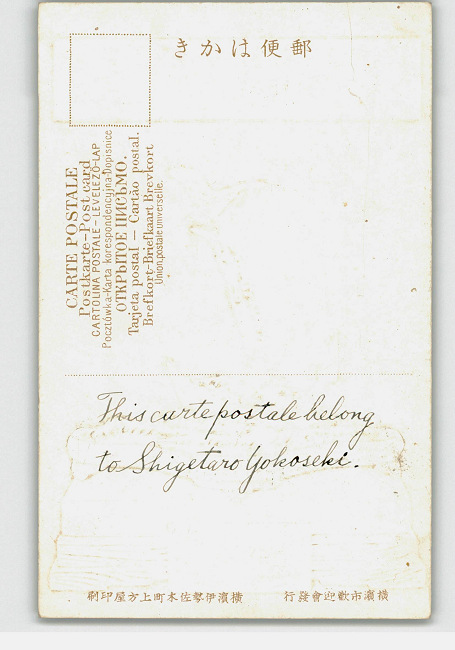 きかは便郵
CARTE POSTALE
Postkarte-Post card
CARTOLINA POSTALE-LEVELEZŐ-LAP
Pocztówka-Karta korespondencyjna-Dopisnice
ОТКРЫТОЕ ПИСЬМО.
Tarjeta postal — Cartão postal.
Brefkort-Briefkaart Brevkort
Union postale universelle.
This carte postale belong
to Shigetaro Yokoseki.
刷印屋方上町木佐勢伊濱横
行發會迎歡市濱横